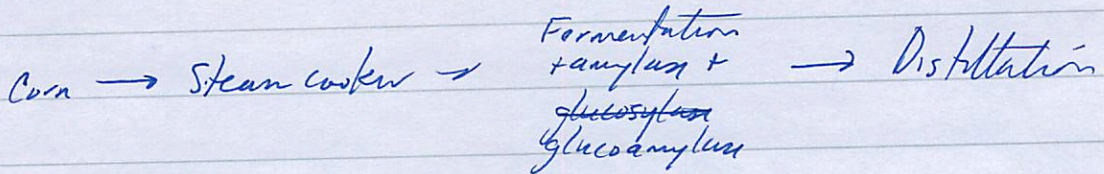 Corn → Steam cooker → Fermentation
+ amylase +
glucosylase
glucoamylase
→ Distillation